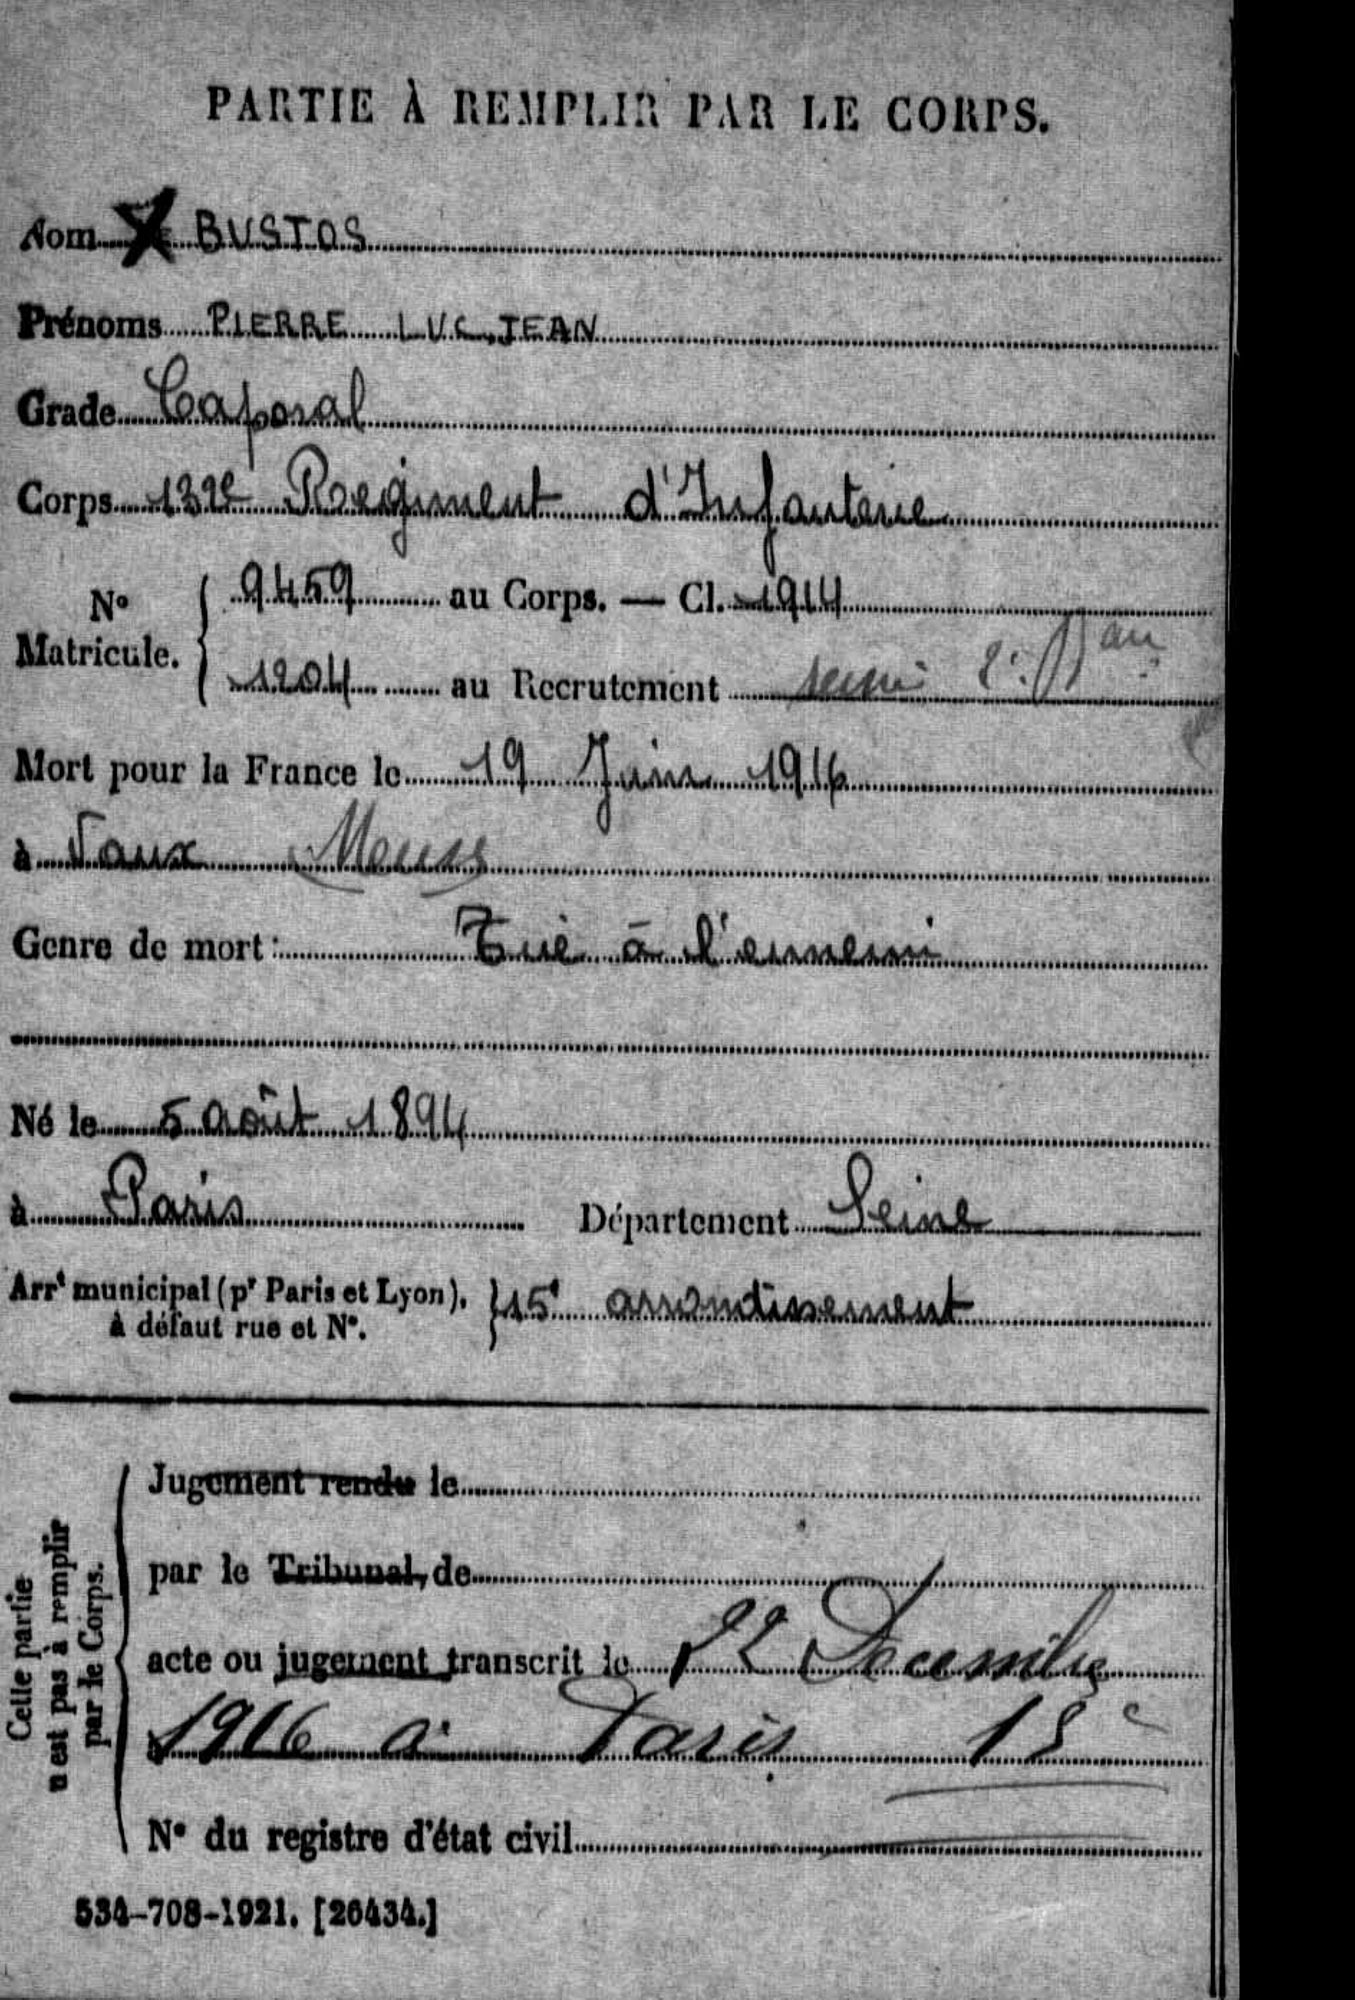 PARTIE À REMPLIR PAR LE CORPS.
Nom BUSTOS
Prénoms PIERRE LUC JEAN
Grade Caporal
Corps 132e Regiment d'Infanterie
N° Matricule. { 9459 au Corps. — Cl. 1914
1204 au Recrutement Seine
Mort pour la France le 19 Juin 1916
à Vaux Meuse
Genre de mort: Tué à l'ennemi
Né le 5 août 1894
à Paris Département Seine
Arrt municipal (pr Paris et Lyon), à défaut rue et N°. } 15e arrondissement
Cette partie n'est pas à remplir par le Corps.
Jugement rendu le
par le Tribunal, de
acte ou jugement transcrit le 22 Decembre
1916 à Paris 15e
N° du registre d'état civil
534-708-1921. [26434.]